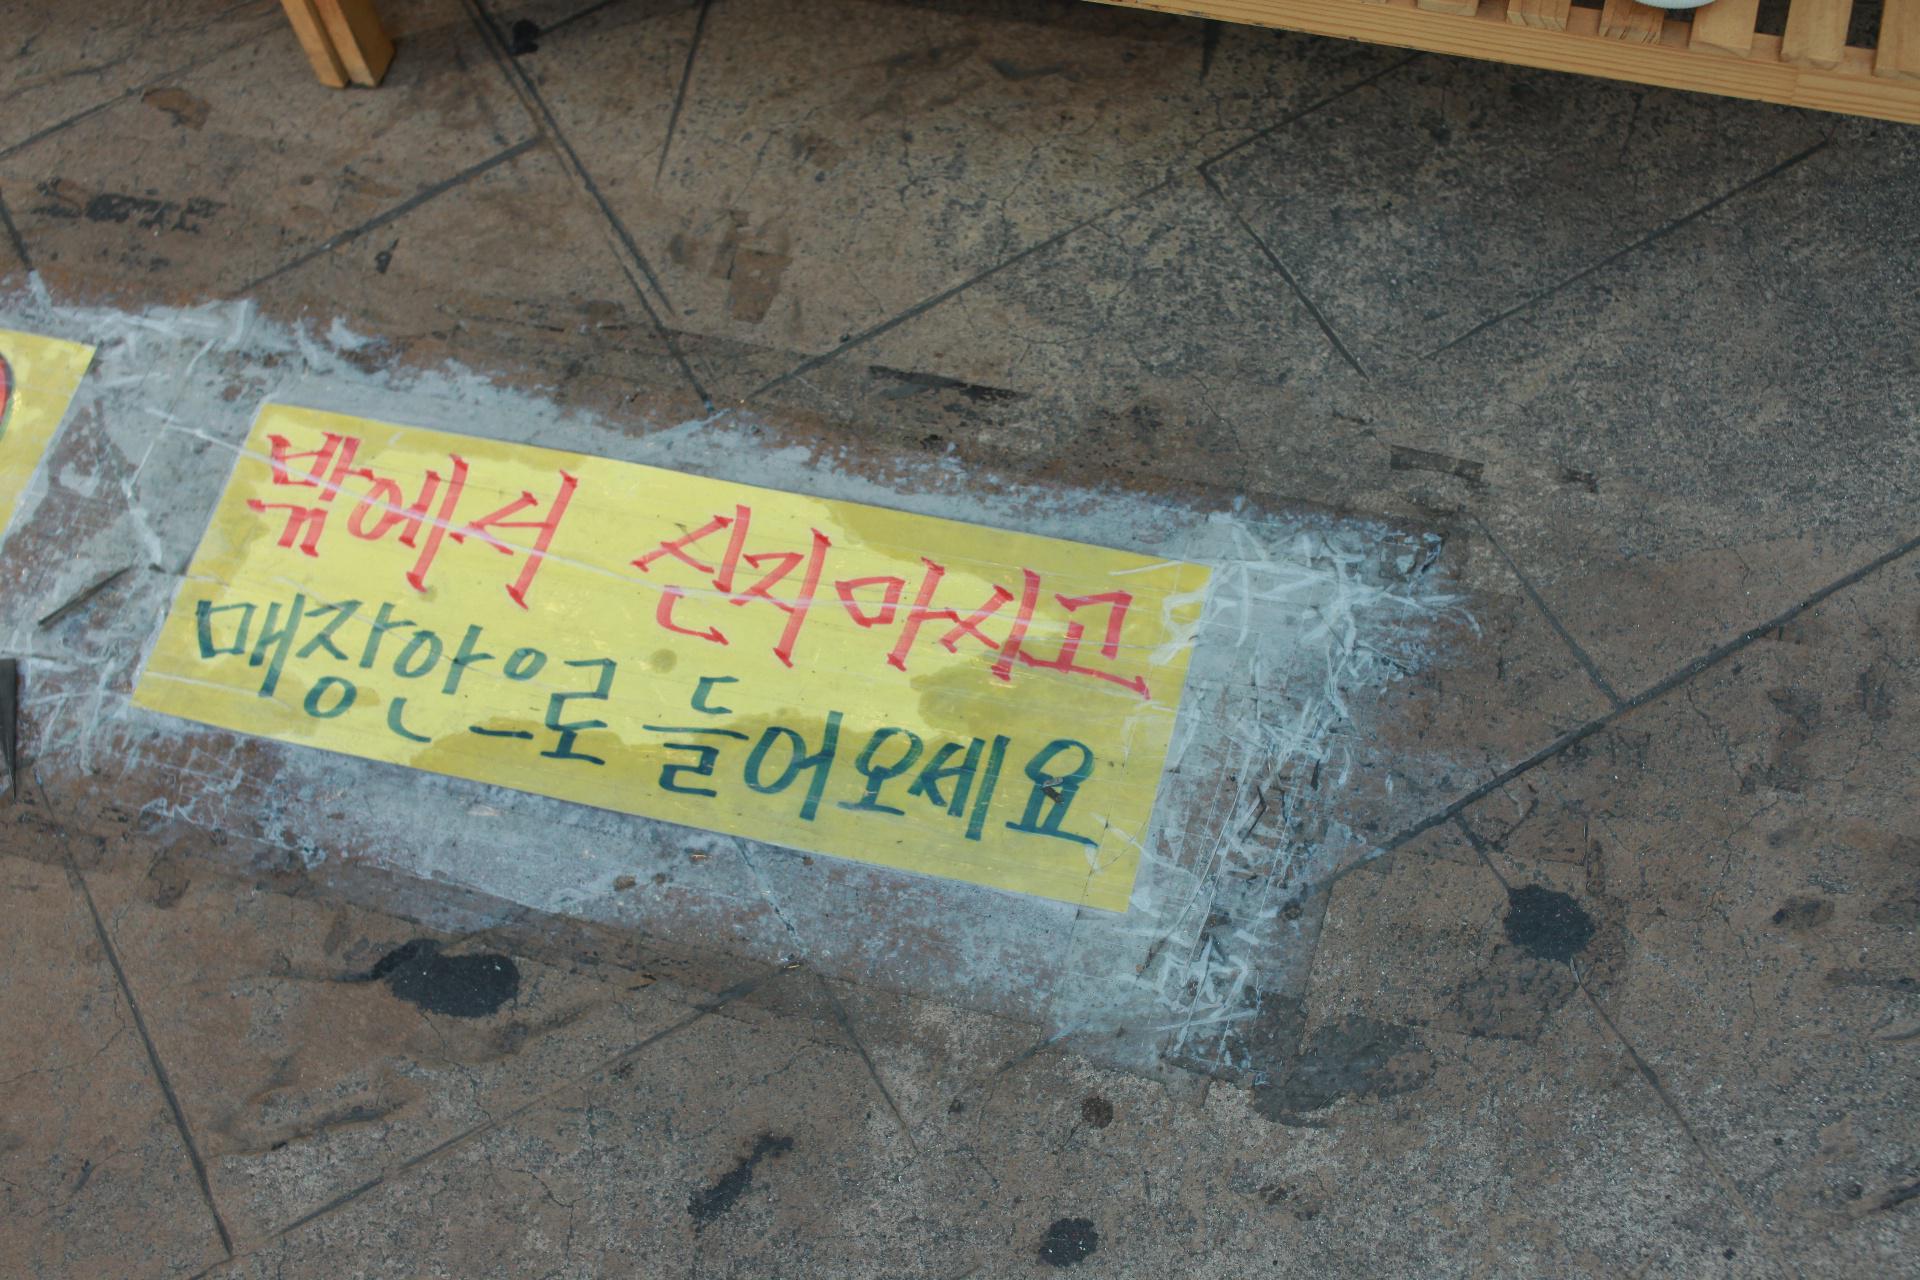 밖에서 신지마시고
매장안으로 들어오세요